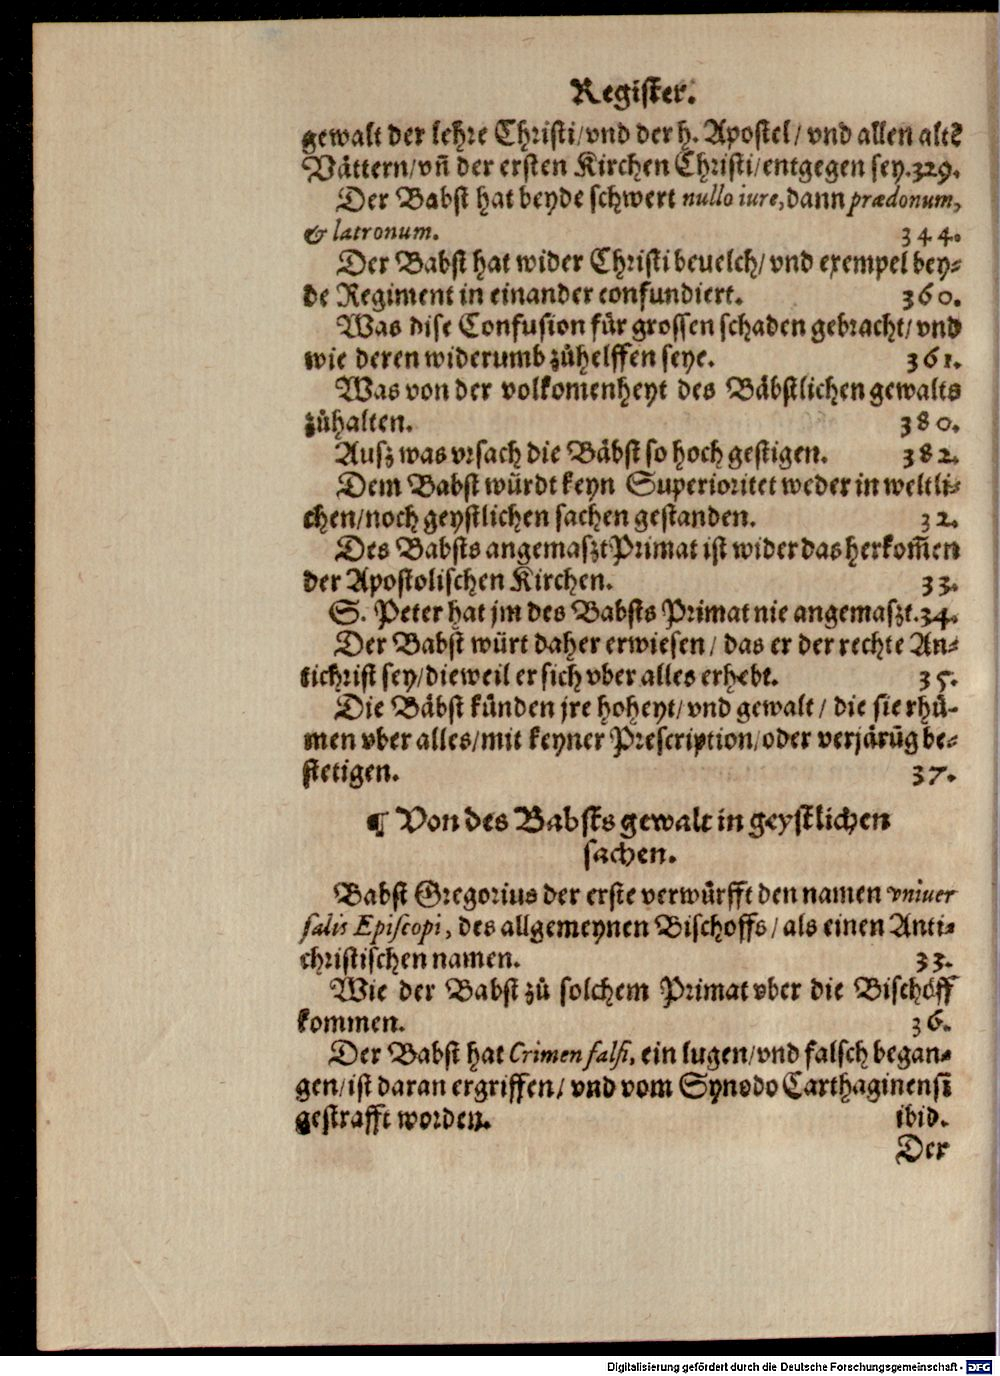 Register.
gewalt der lehre Christi/vnd der h. Apostel/ vnd allen altē
Vättern/vñ der ersten Kirchen Christi/entgegen sey.329.
Der Babst hat beyde schwert nullo iure, dann prædonum,
& latronum. 344.
Der Babst hat wider Christi beuelch/ vnd exempel bey-
de Regiment in einander confundiert. 360.
Was dise Confusion für grossen schaden gebracht/ vnd
wie deren widerumb zůhelffen seye. 361.
Was von der volkomenheyt des Bäbstlichen gewalts
zůhalten. 380.
Ausz was vrsach die Bäbst so hoch gestigen. 382.
Dem Babst würdt keyn Superioritet weder in weltli-
chen/noch geystlichen sachen gestanden. 32.
Des Babsts angemaszt Primat ist wider das herkom̄en
der Apostolischen Kirchen. 33.
S. Peter hat jm des Babsts Primat nie angemaszt.34.
Der Babst würt daher erwiesen/ das er der rechte An-
tichrist sey/dieweil er sich vber alles erhebt. 35.
Die Bäbst künden jre hoheyt/ vnd gewalt/ die sie rhů-
men vber alles/mit keyner Prescription/oder verjärūg be-
stetigen. 37.
¶ Von des Babsts gewalt in geystlichen
sachen.
Babst Gregorius der erste verwürfft den namen vniuer
salis Episcopi, des allgemeynen Bischoffs/ als einen Anti-
christischen namen. 33.
Wie der Babst zů solchem Primat vber die Bischöff
kommen. 36.
Der Babst hat Crimen falsi, ein lugen/vnd falsch began-
gen/ist daran ergriffen/ vnd vom Synodo Carthaginensi
gestrafft worden. ibid.
Der
Digitalisierung gefördert durch die Deutsche Forschungsgemeinschaft - DFG